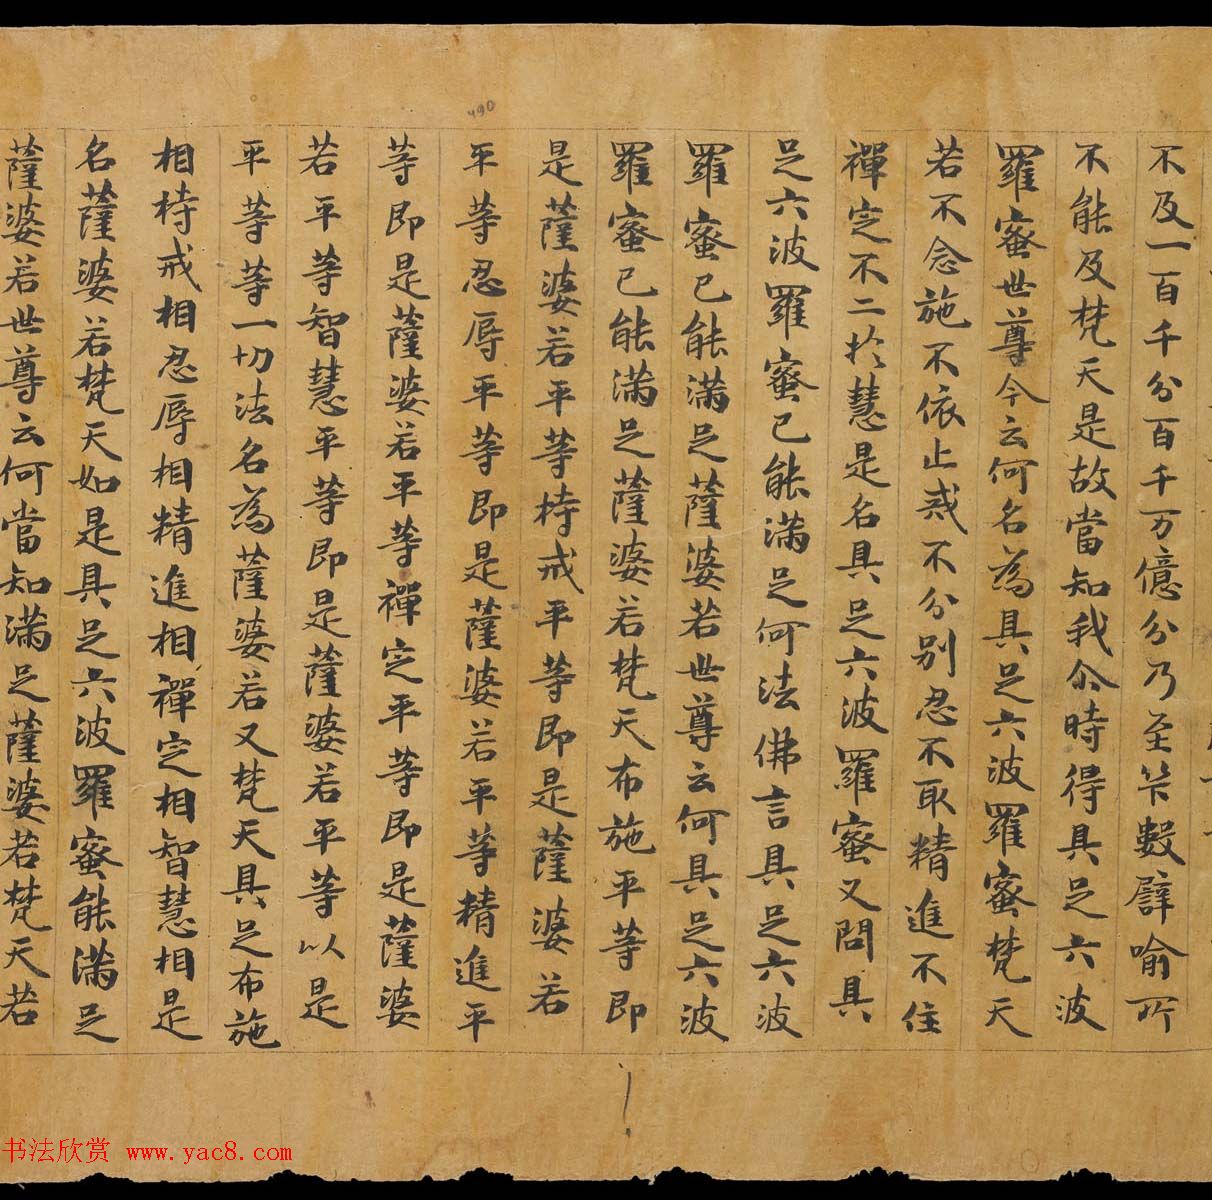 不及一百千分百千万億分乃至笇數譬喻所
不能及梵天是故當知我尒時得具足六波
羅蜜世尊今云何名為具足六波羅蜜梵天
若不念施不依止戒不分別忍不取精進不住
禪定不二於慧是名具足六波羅蜜又問具
足六波羅蜜已能滿足何法佛言具足六波
羅蜜已能滿足薩婆若世尊云何具足六波
羅蜜已能滿足薩婆若梵天布施平等即
是薩婆若平等持戒平等即是薩婆若
平等忍辱平等即是薩婆若平等精進平
等即是薩婆若平等禪定平等即是薩婆
若平等智慧平等即是薩婆若平等以是
平等等一切法名為薩婆若又梵天具足布施
相持戒相忍辱相精進相禪定相智慧相是
名薩婆若梵天如是具足六波羅蜜能滿足
薩婆若世尊云何當知滿足薩婆若梵天若
490
书法欣赏 www.yac8.com